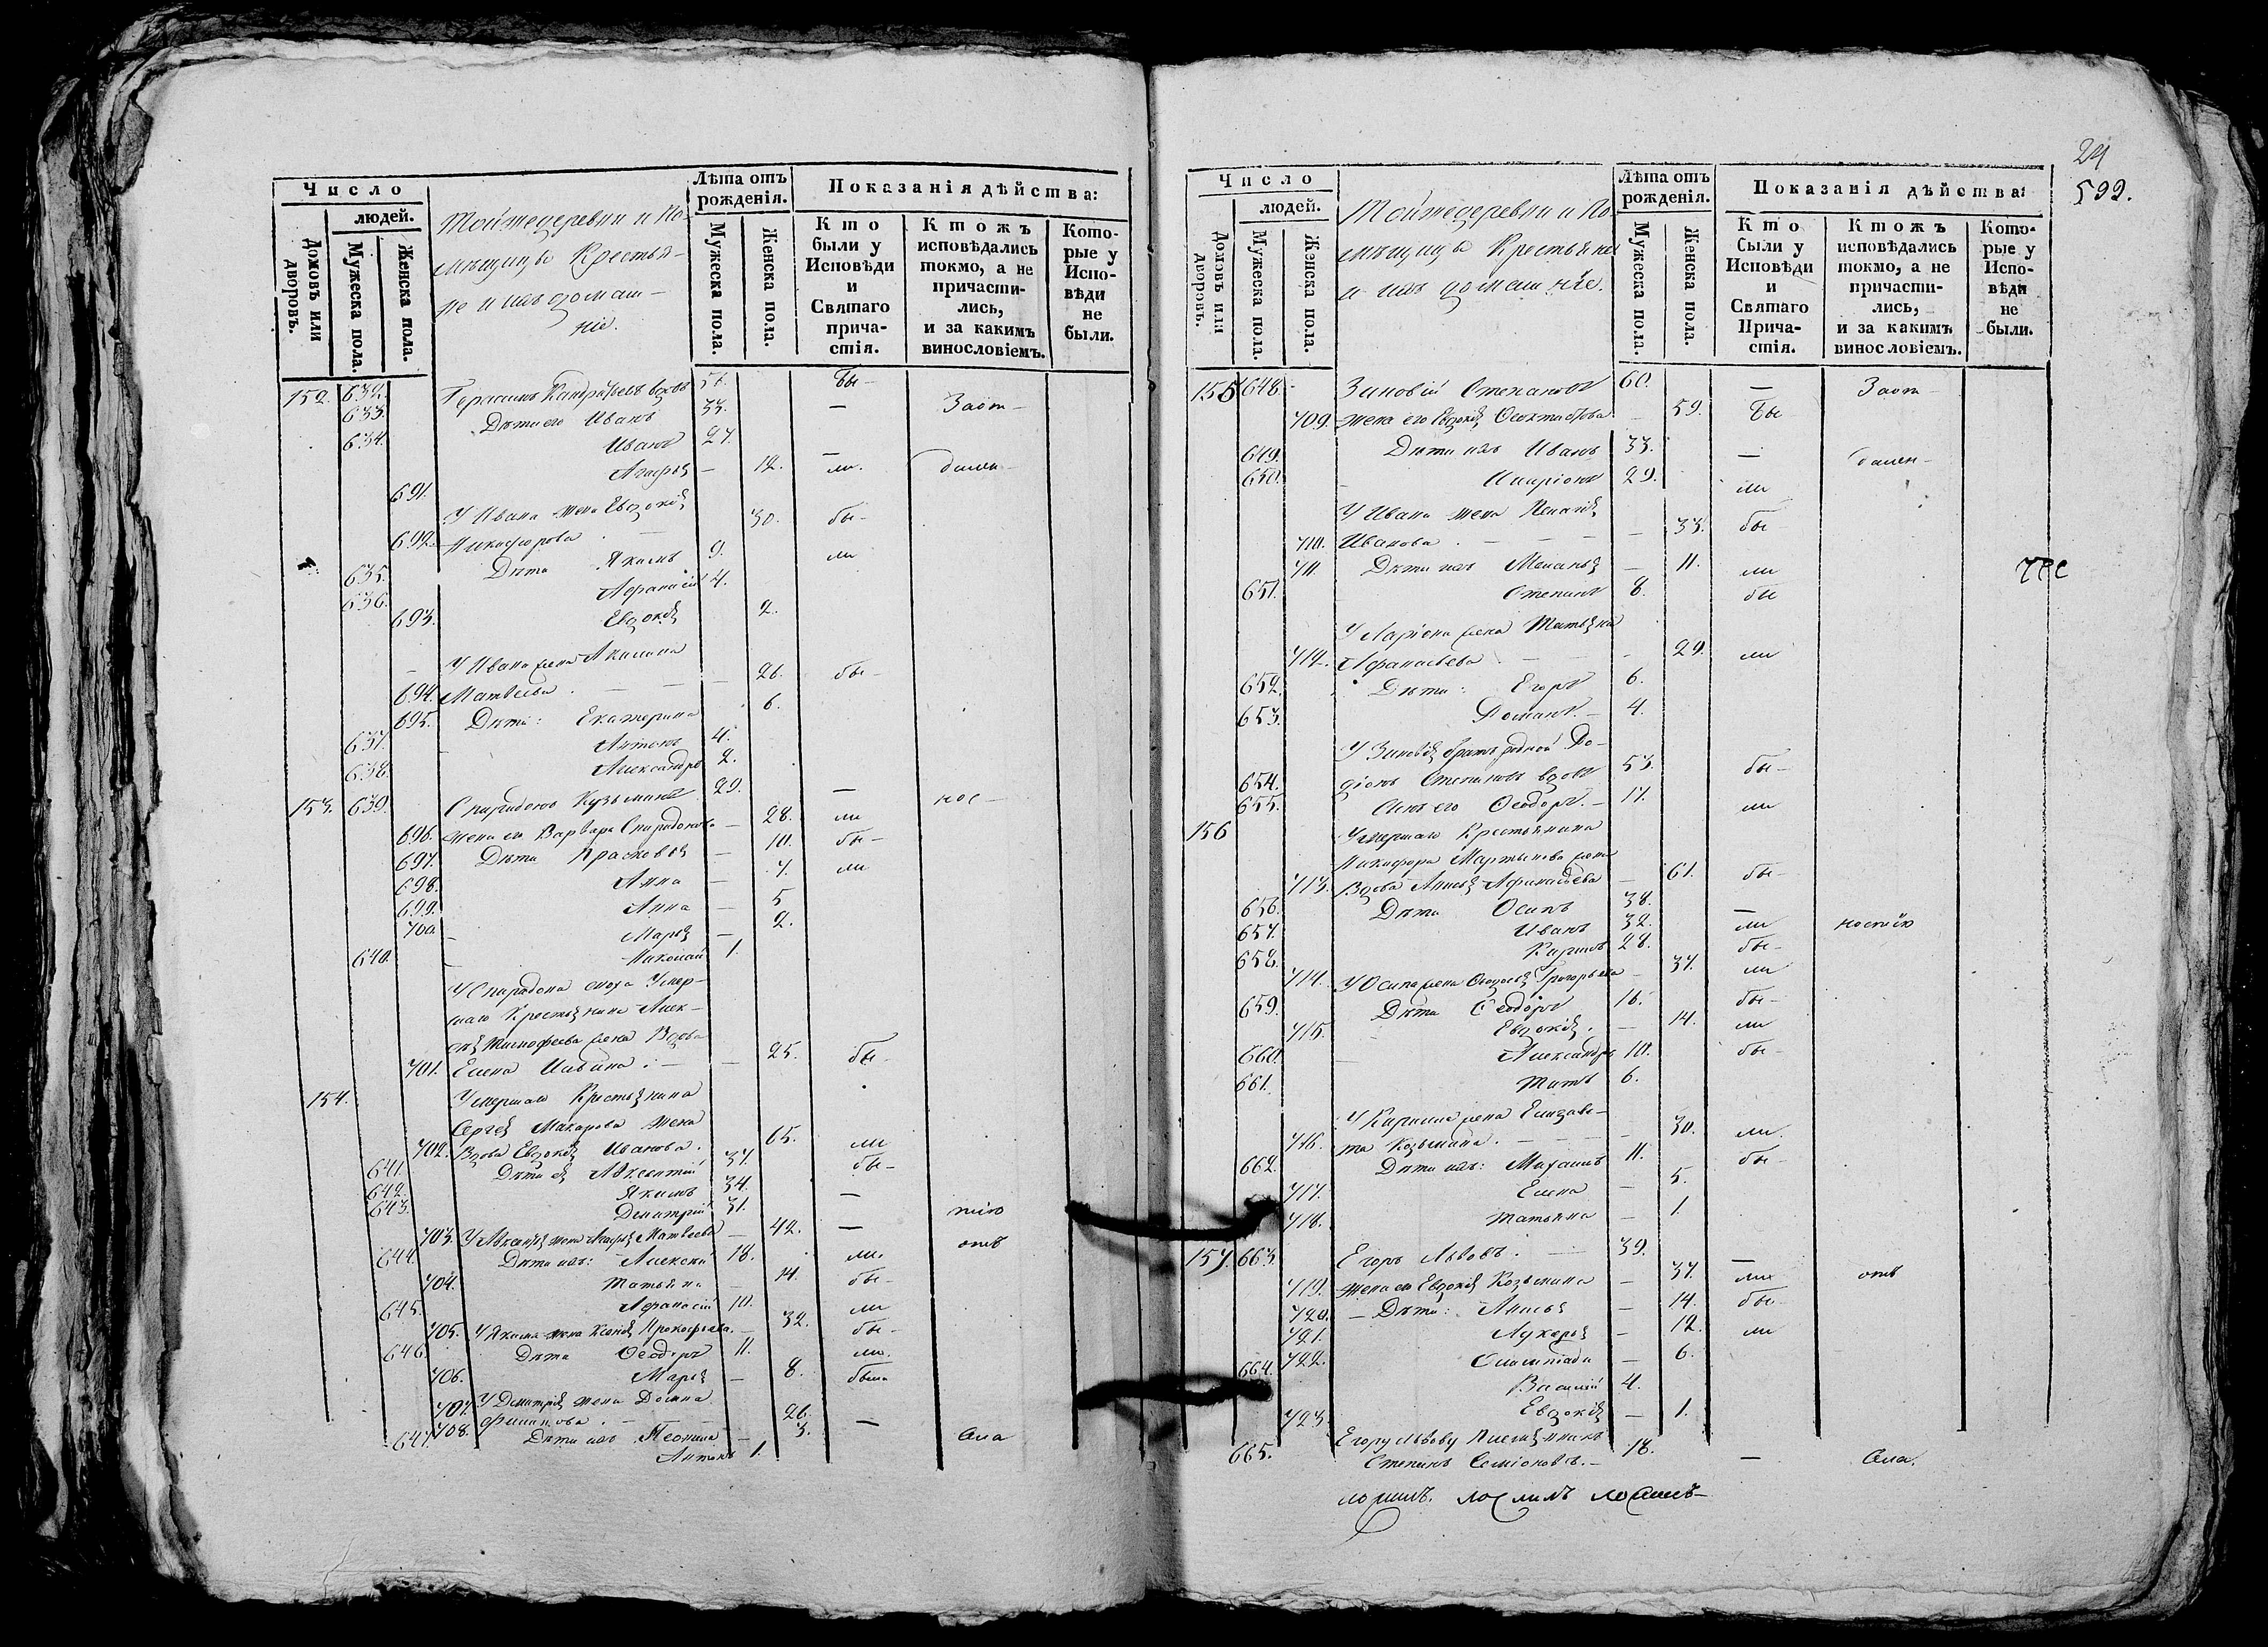 Число
людей.
Домовъ или дворовъ.
Мужеска пола.
Женска пола.
Тойже деревни и По-
мѣщицы Крестья-
не и ихъ домаш-
ніе.
Лѣта отъ рожденія.
Мужеска пола.
Женска пола.
Показанія дѣйства:
Кто были у Исповѣди и Святаго причастія.
Ктожъ исповѣдались токмо, а не причастились, и за какимъ винословіемъ.
Которые у Исповѣди не были.
152. 632. Герасимъ Кандратьевъ вдовъ 56. бы-
633. Дѣти его Иванъ 33. — Заот-
634. Иванъ 27. —
691. Агафья — 12. ли.
У Ивана жена Евдокія
692. Никифорова — 30. бы-
635. Дѣти Якимъ 9. ли
636. Афанасій 4.
693. Евдокія 2.
У Ивана жена Акилина
694. Матвеева — 26. бы-
695. Дѣти: Екатерина 6.
637. Антонъ 4.
638. Александръ 2.
153. 639. Спиридонъ Кузьминъ 29. —
696. жена его Варвара Спиридонова — 28. ли
697. Дѣти Прасковья — 10. бы-
698. Анна — 7. ли
699. Анна — 5
700. Марья — 2.
640. Николай 1.
У Спиридона сноха Умер-
шаго Крестьянина Алек-
сѣя Тимофеева жена Вдова
701. Елена Ильина — 25. бы-
154. Умершаго Крестьянина
Сергея Макарова жена
702. Вдова Евдокія Иванова. 65. ли
641. Дѣти ея Авксентій 37. бы-
642. Якимъ 34. —
643. Дмитрій 31.
703. У Авксентія жена Агафья Матвеева — 42. —
644. Дѣти ихъ: Алексѣй 18. ли.
704. Татьяна — 14. бы-
645. Афанасій 10. ли
705. У Якима жена Ксенія Прокофьева. — 32. бы-
646. Дѣти Ѳеодоръ 11. ли.
706. Марья — 8. была
У Дмитрія жена Домна
707. Филипова. — 26. —
708. Дѣти ихъ — 3.
647. Антонъ 1.
24
599.
Число
людей.
Домовъ или дворовъ.
Мужеска пола.
Женска пола.
Тойже деревни и По-
мѣщицы Крестьяне
и ихъ домашніе.
Лѣта отъ рожденія.
Мужеска пола.
Женска пола.
Показанія дѣйства:
Кто были у Исповѣди и Святаго Причастія.
Ктожъ исповѣдались токмо, а не причастились, и за какимъ винословіемъ.
Которые у Исповѣди не были.
155 648. Зиновій Степановъ 60. — Заот-
709. жена его Евдокія — 59. бы
649. Дѣти ихъ Иванъ 33. —
650. Иларіонъ 29. ли
У Ивана жена Пелагія
710. Иванова — 33. бы-
711. Дѣти ихъ Меланья — 11. ли
651. Степанъ 8. бы
У Ларіона жена Татьяна
712. Афанасьева — 29. ли
652. Дѣти: Егоръ 6.
653. Романъ. — 4.
У Зиновія братъ родной Ро-
654. діонъ Степановъ вдовъ 53. бы-
655. Сынъ его Ѳеодоръ. — 17. ли
156 Умершаго Крестьянина
Никифора Мартынова жена
713. Вдова Анисья Афанасьева — 61. бы-
656. Дѣти Осипъ 38. —
657. Иванъ 32. ли
658. Карпъ 28. бы-
714. У Осипа жена Григорьева — 37. ли
659. Дѣти Ѳеодоръ 16. бы-
715. Евдокія. — 14. ли
660. Александръ 10. бы-
661. Титъ 6.
У Карпа жена Елизаве-
716. та Козьмина. — 30. ли.
662. Дѣти ихъ: 11. бы-
717. Елена — 5.
718. Татьяна — 1.
157. 663. Егоръ Львовъ. — 39. —
719. жена его Евдокія Козьмина — 37. ли
720. — Дѣти: Анисья — 14. бы-
721. Лукерья — 12. ли
722. Олимпіада — 6.
664. Василій 4.
723. Евдокія — 1.
Егору Львову племянникъ
665. Степанъ Семіоновъ. — 18. —